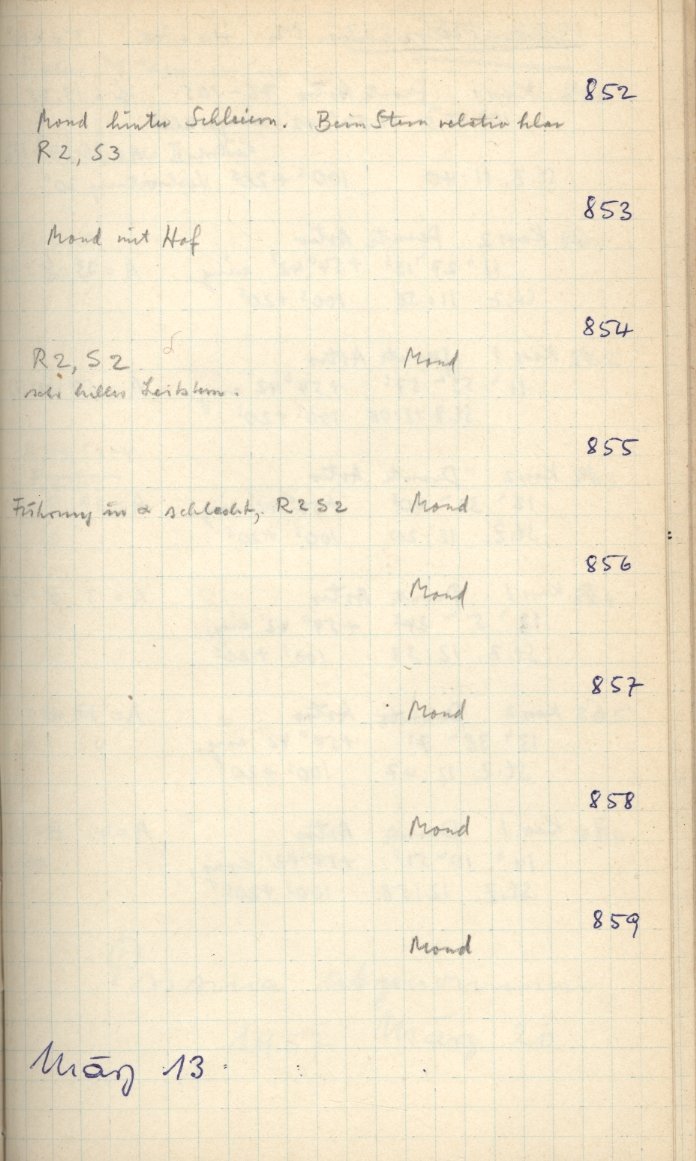 852
Mond hinter Schleiern. Beim Stern relativ klar
R 2, S 3
853
Mond mit Hof
854
R 2, S 2 Mond
sehr heller Leitstern.
855
Führung in α schlecht, R 2 S 2 Mond
856
Mond
857
Mond
858
Mond
859
Mond
März 13